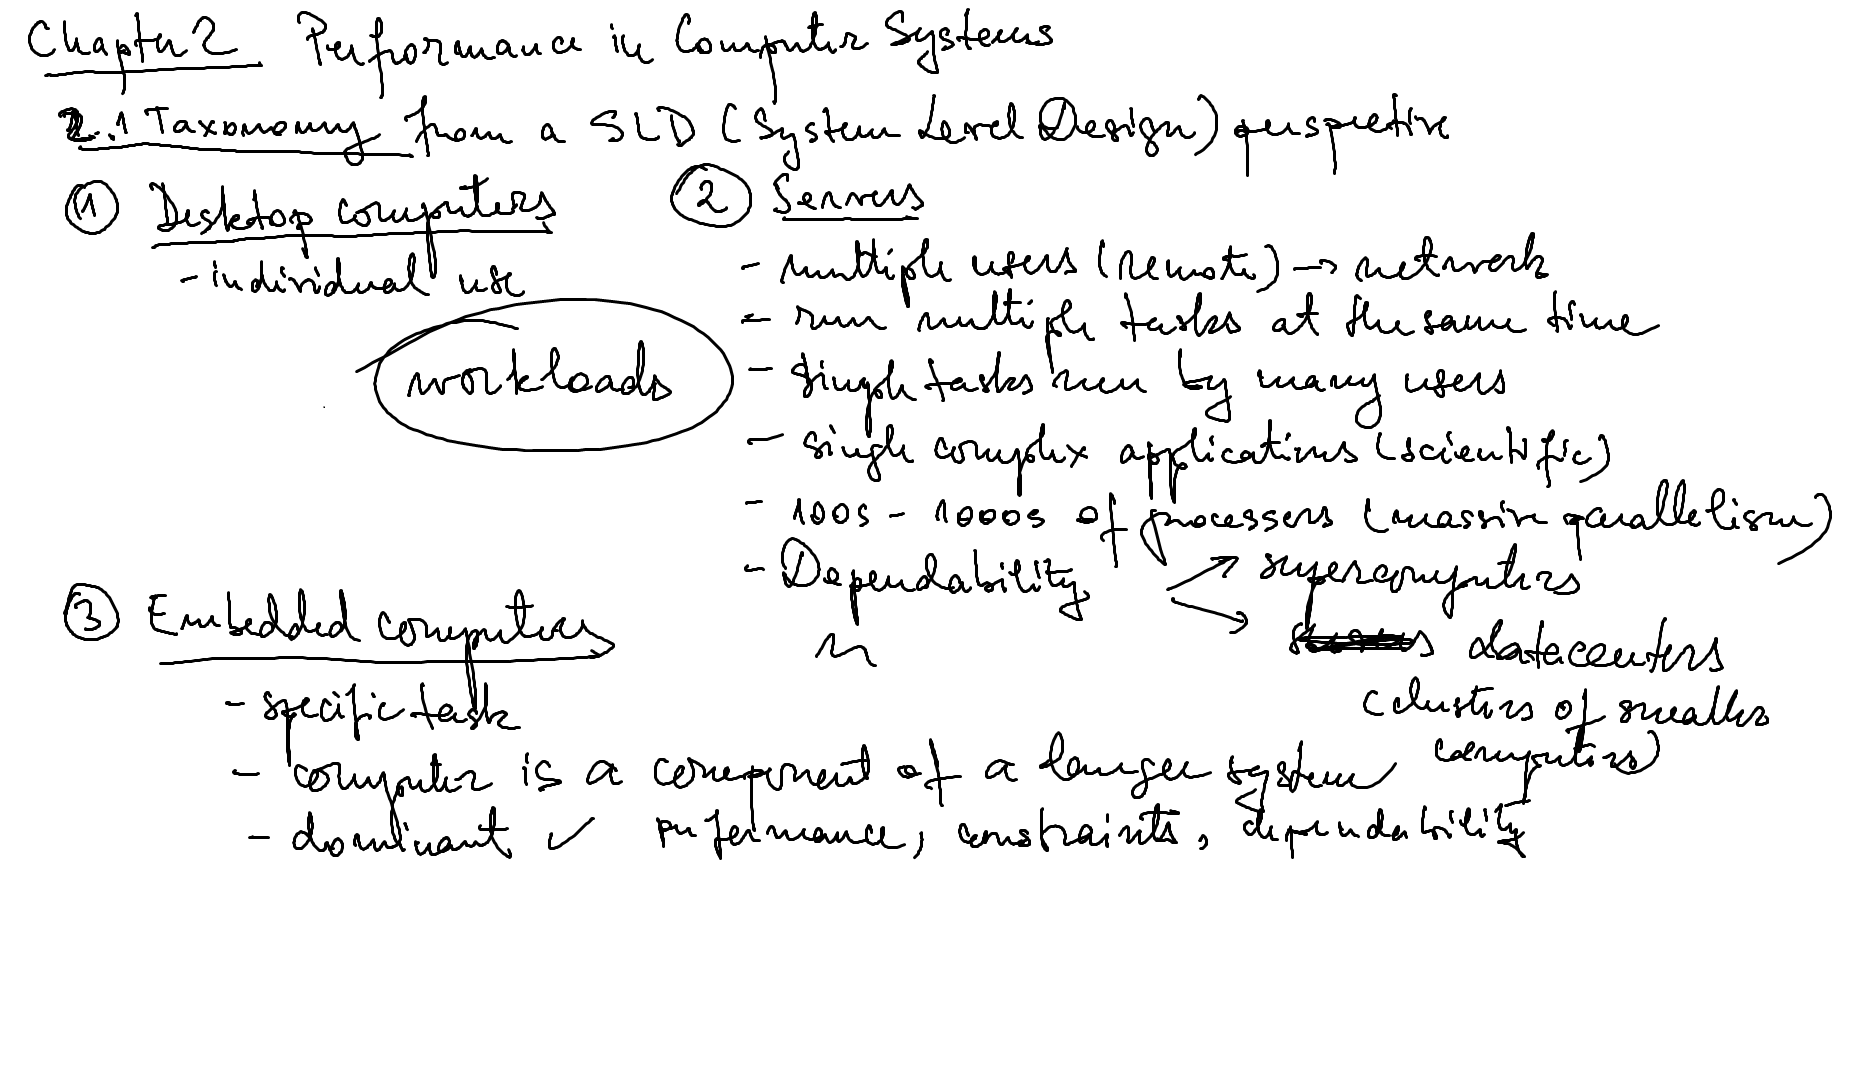 Chapter 2 Performance in Computer Systems
2.1 Taxonomy from a SLD (System Level Design) perspective
① Desktop computers
- individual use
workloads
② Servers
- multiple users (remote) → network
- run multiple tasks at the same time
- single tasks run by many users
- single complex applications (scientific)
- 100s - 1000s of processers (massive parallelism)
- Dependability
→ supercomputers
→ datacenters
(clusters of smaller
computers)
③ Embedded computers
- specific task
- computer is a component of a larger system
- dominant ✓ performance, constraints, dependability